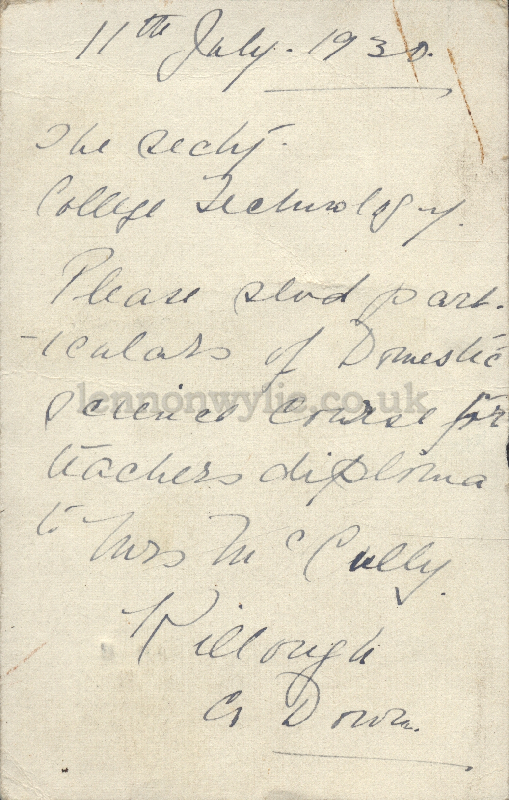 11th July. 1930.
The Secty.
College Technology.
Please send part-
-iculars of Domestic
Science Course for
lennonwylie.co.uk
teachers diploma
to Mrs McCully
Killough
Co Down.